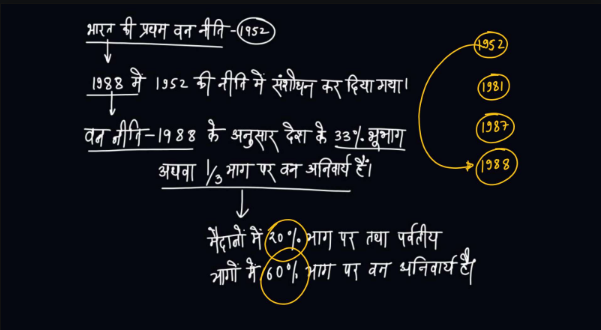 भारत की प्रथम वन नीति - 1952
1988 में 1952 की नीति में संशोधन कर दिया गया।
वन नीति - 1988 के अनुसार देश के 33% भूभाग
अथवा 1/3 भाग पर वन अनिवार्य हैं।
मैदानों में 20% भाग पर तथा पर्वतीय
भागों में 60% भाग पर वन अनिवार्य है।
1952
1981
1987
1988